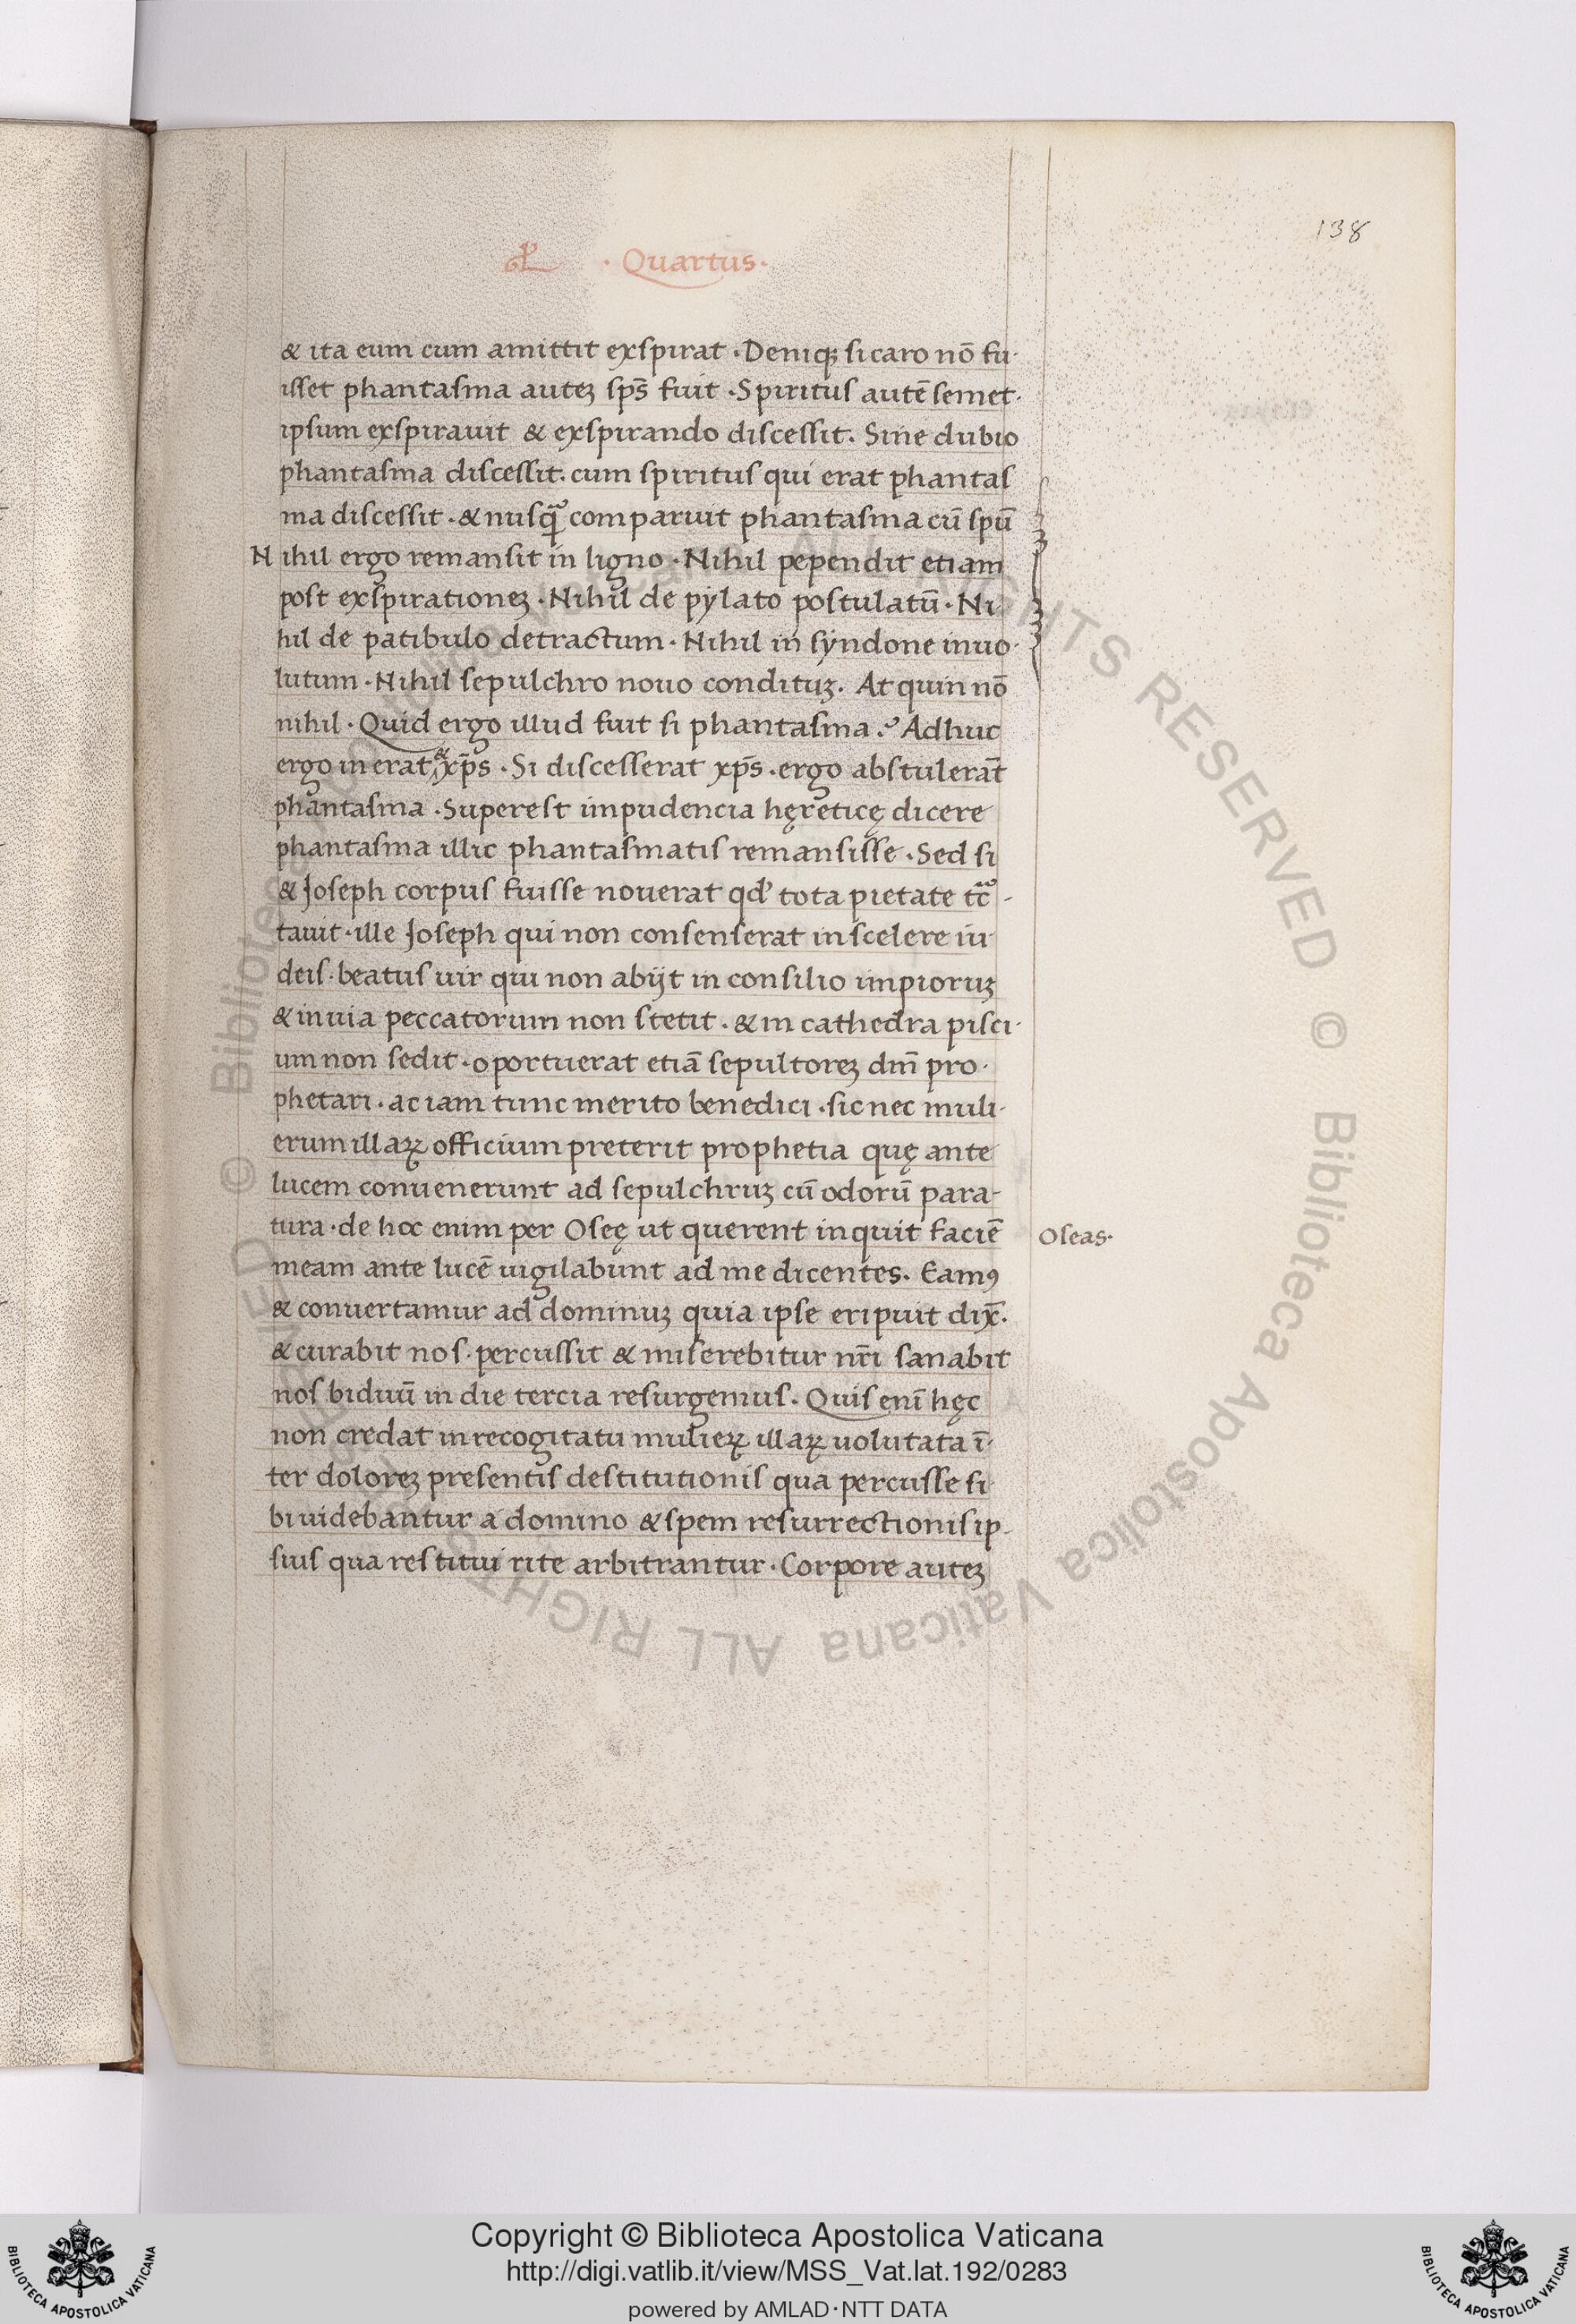 138
· Quartus ·
& ita eum cum amittit exspirat · Deniqꝫ si caro nō fu·
isset phantasma auteꝫ sp̄s fuit · Spiritus autē semet·
ipsum exspirauit & exspirando discessit. Sine dubio
phantasma discessit. cum spiritus qui erat phantas
ma discessit · & nusqᷓ comparuit phantasma cū spū
Nihil ergo remansit in ligno · Nihil pependit etiam
post exspirationeꝫ · Nihil de pylato postulatū · Ni
hil de patibulo detractum · Nihil in syndone inuo·
lutum · Nihil sepulchro nouo condituꝫ. At quin nō
nihil · Quid ergo illud fuit si phantasma ? Adhuc
ergo in erat & xp̄s · Si discesserat xp̄s · ergo abstulerat̄
phantasma · Superest impudencia hęreticę dicere
phantasma illic phantasmatis remansisse · Sed si
& Joseph corpus fuisse nouerat qd' tota pietate tᷓc-
tauit · ille Joseph qui non consenserat in scelere iu·
deis · beatus uir qui non abijt in consilio impioruꝫ
& in uia peccatorum non stetit · & in cathedra pisci·
um non sedit · oportuerat etiā sepultoreꝫ dn̄i pro·
phetari · ac iam tunc merito benedici · sic nec muli·
erum illaꝝ officium preterit prophetia quę ante
lucem conuenerunt ad sepulchruꝫ cū odorū para-
tura · de hoc enim per Oseę ut querent inquit faciē
Oseas·
meam ante lucē uigilabunt ad me dicentes. Eamꝰ
& conuertamur ad dominuꝫ quia ipse eripuit dix̄.
& curabit nos · percussit & miserebitur nr̄i sanabit
nos biduū in die tercia resurgemus. Quis eni̅ hęc
non credat in recogitatu mulieꝝ illaꝝ uolutata ī·
ter doloreꝫ presentis destitutionis qua percusse si
bi uidebantur a domino & spem resurrectionis ip-
sius qua restitui rite arbitrantur · Corpore auteꝫ
© Biblioteca Apostolica Vaticana ALL RIGHTS RESERVED
© Biblioteca Apostolica Vaticana ALL RIGHTS RESERVED
Copyright © Biblioteca Apostolica Vaticana
http://digi.vatlib.it/view/MSS_Vat.lat.192/0283
powered by AMLAD·NTT DATA
BIBLIOTECA APOSTOLICA VATICANA
BIBLIOTECA APOSTOLICA VATICANA